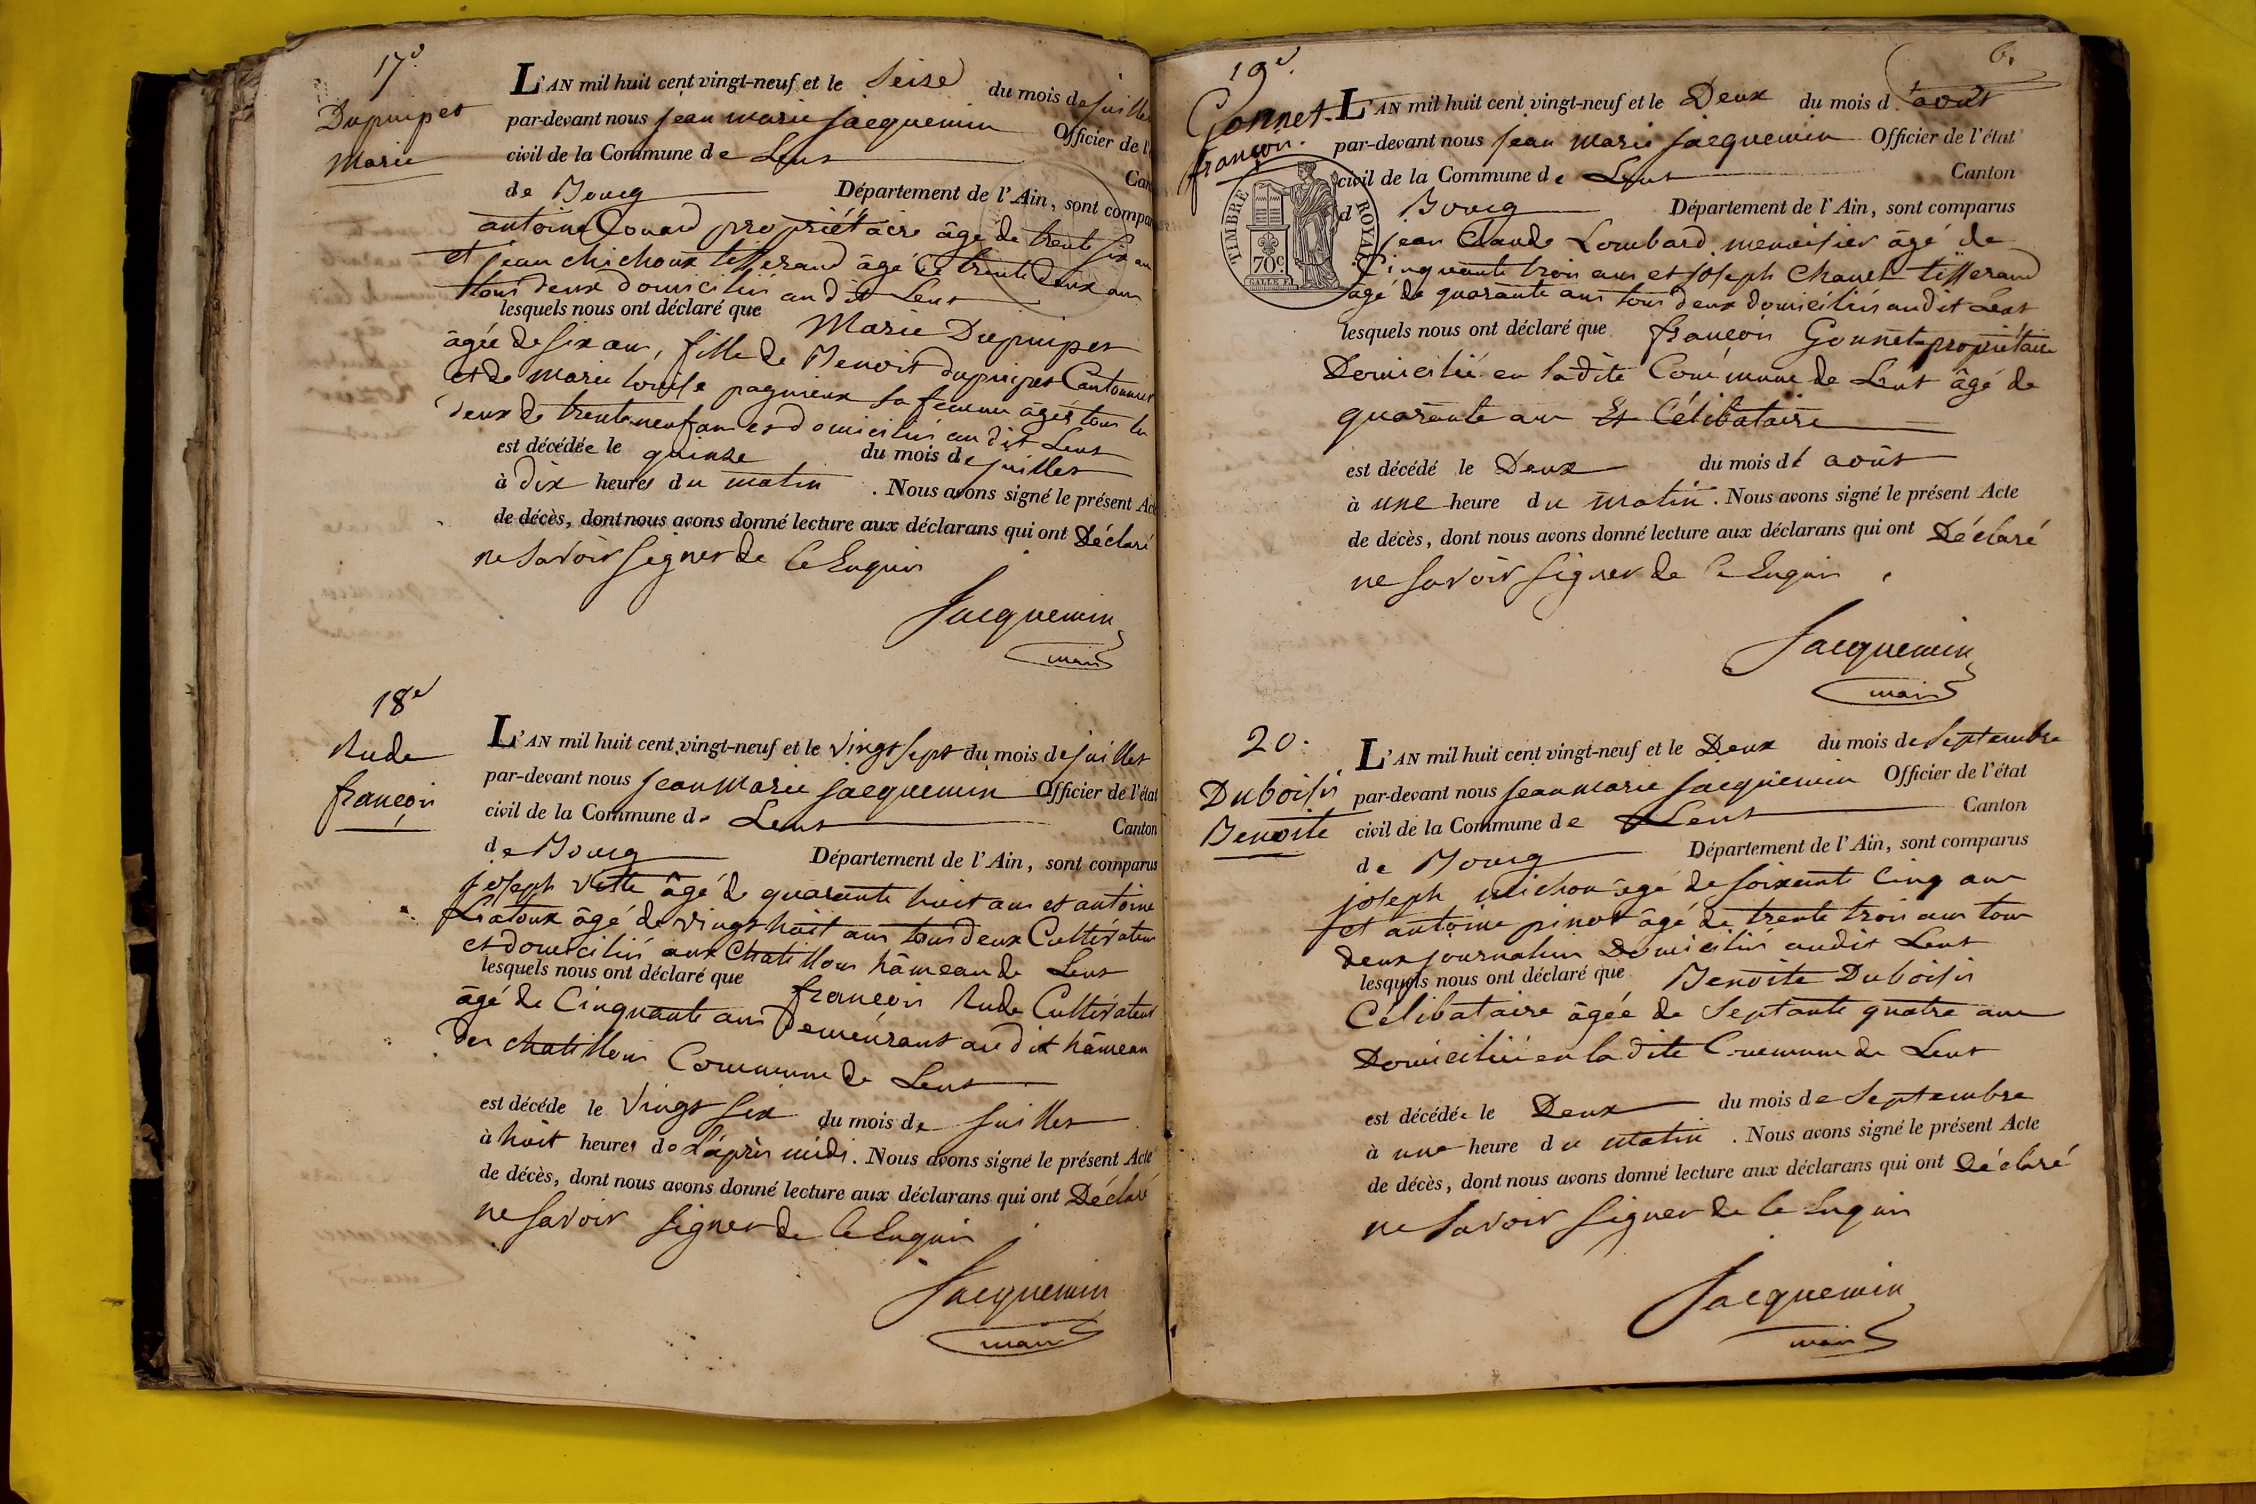 17e
Dupuipet
Marie
L'AN mil huit cent vingt-neuf et le Seise du mois de juillet
par-devant nous jean marie jacquemin Officier de l'
civil de la Commune de Lent
Can
de Bourg Département de l'Ain, sont compar
antoine Convard propriétaire âgé de trente six ans
et jean chichoux tisserand âgé de trente deux ans
tous deux domiciliés audit Lent
lesquels nous ont déclaré que Marie Dupuipet
âgée de six ans, fille de Benoit dupuipet Cantonnier
et de marie louise pagneux sa femme âgés tous les
deux de trente neuf ans et domiciliés audit Lent
est décédée le quinze du mois de juillet
à dix heures du matin . Nous avons signé le présent Acte
de décès, dont nous avons donné lecture aux déclarans qui ont Déclaré
ne savoir signer de ce Enquis
Jacquemin
maire
18e
Rude
françois
L'AN mil huit cent vingt-neuf et le vingt sept du mois de juillet
par-devant nous jean marie jacquemin Officier de l'état
civil de la Commune de Lent
Canton
de Bourg Département de l'Ain, sont comparus
joseph vette âgé de quarante huit ans et antoine
âgé de vingt huit ans tous deux Cultivateurs
et domiciliés aux Chatillons hâmeau de Lent
lesquels nous ont déclaré que françois Rude Cultivateur
âgé de Cinquante ans Demeurant audit hâmeau
des chatillons Commune de Lent
est décédé le vingt six du mois de juillet
à huit heures de L'après midi. Nous avons signé le présent Acte
de décès, dont nous avons donné lecture aux déclarans qui ont Déclaré
ne savoir signer de ce Enquis
Jacquemin
maire
6.
19e.
Gonnet
françois.
TIMBRE ROYAL
70c
L'AN mil huit cent vingt-neuf et le Deux du mois d'août
par-devant nous jean marie jacquemin Officier de l'état
civil de la Commune de Lent
Canton
d Bourg Département de l'Ain, sont comparus
jean Claude Lombard menuisier âgé de
Cinquante trois ans et joseph Chanel tisserand
âgé de quarante ans tous deux domiciliés audit Lent
lesquels nous ont déclaré que françois Gonnet propriétaire
Domicilié en ladite Commune de Lent âgé de
quarante ans Et Célibataire
est décédé le Deux du mois de août
à une heure du matin. Nous avons signé le présent Acte
de décès, dont nous avons donné lecture aux déclarans qui ont Déclaré
ne savoir signer de ce Enquis .
Jacquemin
maire
20.
Duboisis
Benoite
L'AN mil huit cent vingt-neuf et le Deux du mois de Septembre
par-devant nous jean marie jacquemin Officier de l'état
civil de la Commune de Lent
Canton
de Bourg Département de l'Ain, sont comparus
joseph michon âgé de soixante Cinq ans
et antoine pinot âgé de trente trois ans tous
deux journaliers Domiciliés audit Lent
lesquels nous ont déclaré que Benoite Duboisis
Célibataire âgée de Septante quatre ans
Domiciliée en la dite Commune de Lent
est décédée le Deux du mois de Septembre
à une heure du matin . Nous avons signé le présent Acte
de décès, dont nous avons donné lecture aux déclarans qui ont Déclaré
ne savoir signer de ce Enquis
Jacquemin
maire